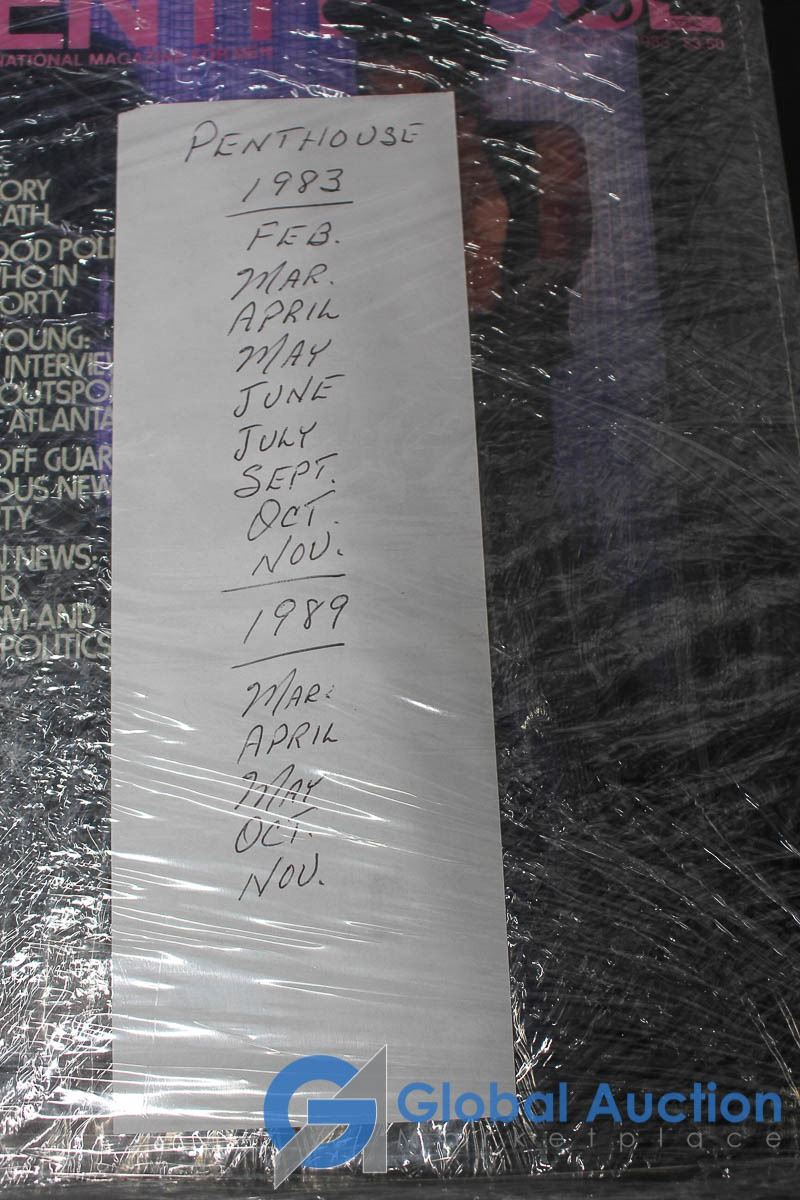 NATIONAL MAGAZINE FOR MEN
$3.50
PENTHOUSE
1983
FEB.
MAR.
APRIL
MAY
JUNE
JULY
SEPT.
OCT.
NOV.
1989
MAR.
APRIL
MAY
OCT.
NOV.
ORY
EATH
OOD POLI
HO IN
ORTY
OUNG:
INTERVIE
OUTSPO
ATLANTA
OFF GUAR
OUS NEW
TY
N NEWS:
D
SM-AND
POLITICS
Global Auction
Marketplace